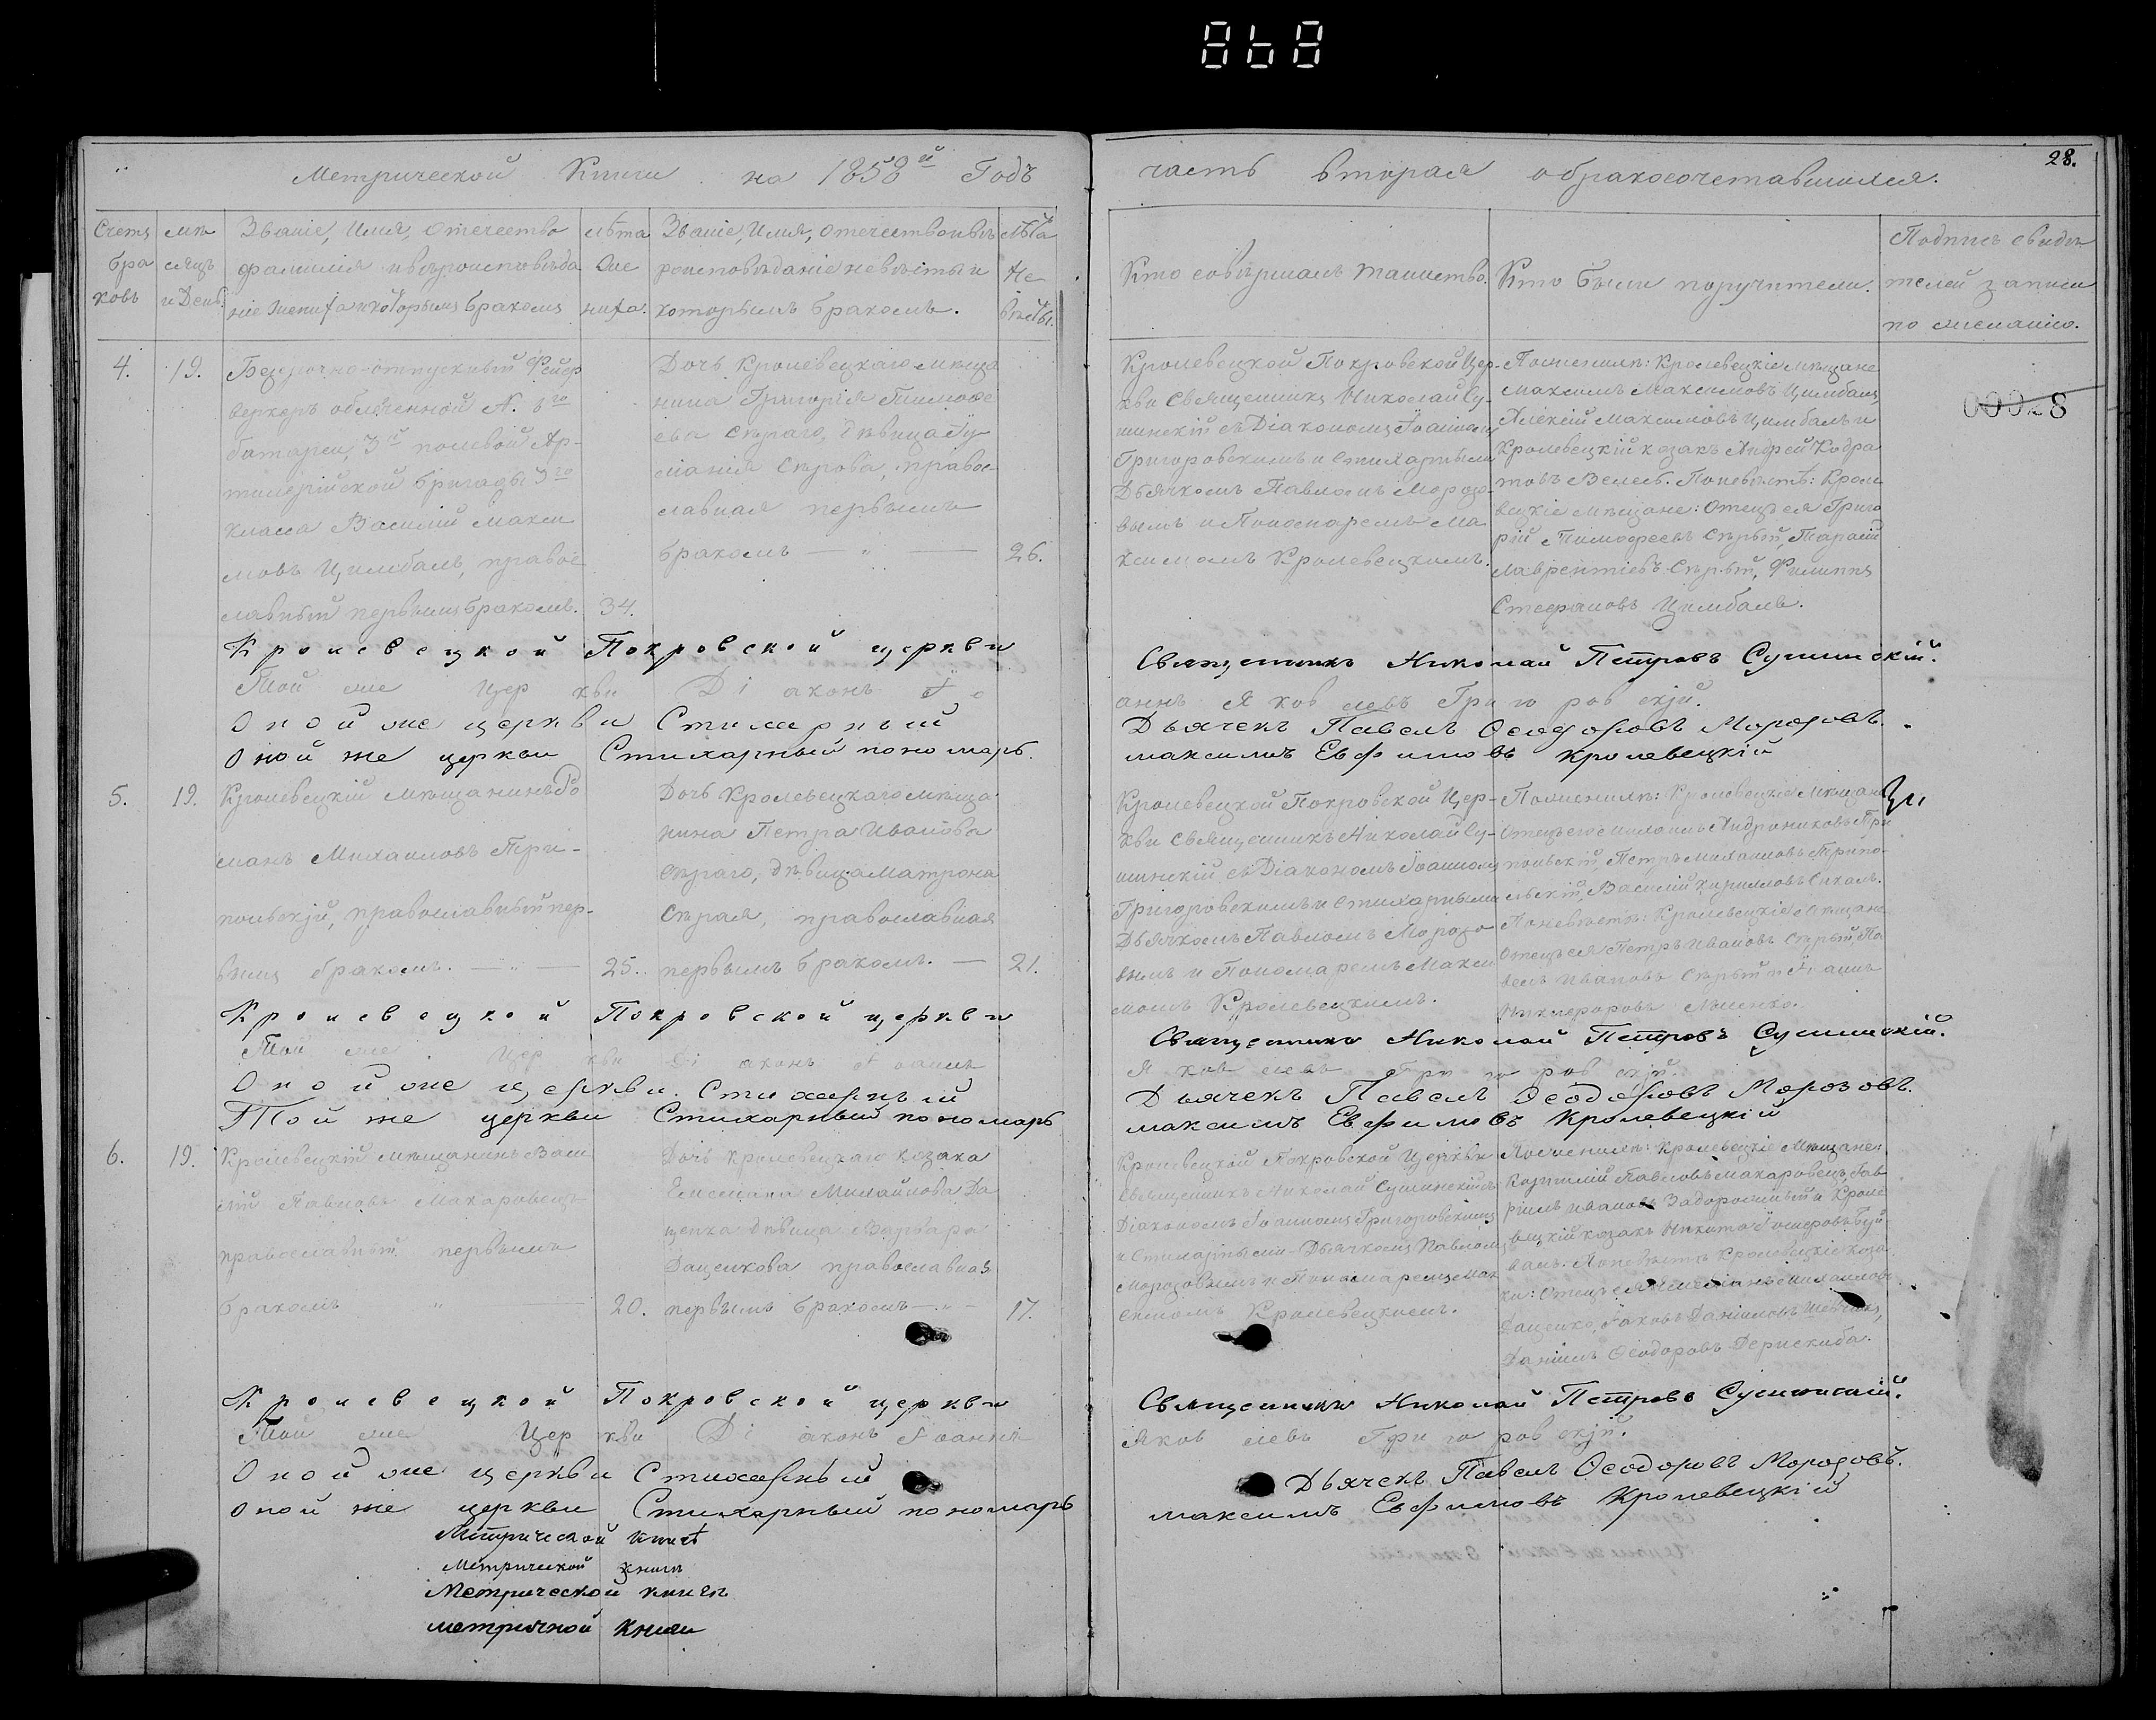 Метрической Книги на 1858й Годъ
часть вторая обракосочетавшихся.
28.
Счетъ браковъ
мѣсяцъ и День.
Званіе, Имя, Отечество
фамилія и вѣроисповѣда
ніе Жениха и которымъ бракомъ
лѣта
Же
ниха.
Званіе, Имя, Отечество и вѣ
роисповѣданіе невѣсты и
которымъ бракомъ.
лѣта
Не
вѣсты.
Кто совѣршалъ таинство.
Кто были поручители.
Подпись свидѣ
телей записи
по желанію.
4.
19.
Безсрочно-отпускный Фейер
веркеръ облегченной N. 6го
батареи, 3й полевой Ар-
тилерійской бригады 3го
класса Василій Макси
мовъ Цимбалъ, правос
лавный первымъ бракомъ.
34.
Дочь Кролевецкаго мѣща
нина Григорія Тимофе
ева Сѣраго, дѣвица Іу
ліанія Сѣрова, правос
лавная первымъ
бракомъ — „ —
26.
Кролевецкой Покровской Цер-
кви Священникъ Николай Су-
шинскій съ Діакономъ Іоанномъ
Григоровскимъ и Стихарными
Дьячкомъ Павломъ Морозо-
вымъ и Пономаремъ Ма
ксимомъ Кролевецкимъ.
По женихѣ: Кролевецкіе мѣщане
Максимъ Максимовъ Цимбалъ,
Алексій Максимовъ Цимбалъ и
Кролевецкій козакъ Андрей Кодра
товъ Велесъ. По невѣстѣ: Кроле
вецкіе мѣщане: Отецъ ея Григо
рій Тимофеевъ Сѣрый, Тарасій
Лаврентіевъ Сѣрый, Филиппъ
Стефановъ Цимбалъ.
00028
Кролевецкой Покровской церкви
Священникъ Николай Петровъ Сушинскій.
Той же Церкви Діаконъ Іо
аннъ Яковлевъ Григоровскій.
Оной же церкви Стихарный
Дьячекъ Павелъ Ѳеодоровъ Морозовъ.
Оной же церкви Стихарный пономарь.
Максимъ Евфимовъ Кролевецкій
5.
19.
Кролевецкій мѣщанинъ Ро
манъ Михаиловъ Три-
польскій, православный пер-
вымъ бракомъ. — „ —
25.
Дочь Кролевецкаго мѣща
нина Петра Иванова
Сѣраго, дѣвица Матрона
Сѣрая, православная
первымъ бракомъ. —
21.
Кролевецкой Покровской Цер-
кви Священникъ Николай Су-
шинскій съ Діакономъ Іоанномъ
Григоровскимъ и Стихарными
Дьячкомъ Павломъ Морозо
вымъ и Пономаремъ Макси
момъ Кролевецкимъ.
По женихѣ: Кролевецкіе мѣщане
Отецъ его Михаилъ Андрониковъ Три
польскій, Петръ Михаиловъ Трипо-
льскій, Василій Кирилловъ
По невѣстѣ: Кролевецкіе мѣщане
Отецъ ея Петръ Ивановъ Сѣрый Па
велъ Ивановъ Сѣрый и Іоаннъ
Никифоровъ
Кролевецкой Покровской церкви
Священникъ Николай Петровъ Сушинскій.
Той же Церкви Діаконъ Іоаннъ
Яковлевъ Григоровскій.
Оной же церкви. Стихарный
Дьячекъ Павелъ Ѳеодоровъ Морозовъ.
Той же церкви Стихарный пономарь
Максимъ Евфимовъ Кролевецкій
6.
19.
Кролевецкій мѣщанинъ Васи
лій Павловъ Макаровецъ
православный первымъ
бракомъ „ —
20.
Дочь Кролевецкаго козака
Емеліана Михайлова Да
ценка дѣвица Варвара
Даценкова православная
первымъ бракомъ — „ —
17.
Кролевецкой Покровской Церкви
Священникъ Николай Сушинскій съ
Діакономъ Іоанномъ Григоровскимъ
и Стихарными - Дьячкомъ Павломъ
Морозовымъ и Пономаремъ Мак
симомъ Кролевецкимъ.
По женихѣ: Кролевецкіе Мѣщане:
Павловъ Макаровецъ, Гав
риилъ Ивановъ Задорожный и Кроле
вецкій козакъ Никита
По невѣстѣ Кролевецкіе коза
ки: Отецъ ея Емеліанъ Михаиловъ
Даценко, Іаковъ Даніиловъ Шевчикъ,
Даніилъ Ѳеодоровъ Дерискиба.
Кролевецкой Покровской церкви
Священникъ Николай Петровъ Сушинскій.
Той же Церкви Діаконъ Іоаннъ
Яковлевъ Григоровскій.
Оной же церкви Стихарный
Дьячекъ Павелъ Ѳеодоровъ Морозовъ.
Оной же церкви Стихарный пономарь
Максимъ Евфимовъ Кролевецкій
Метрической книгѣ
Метрической книги
Метрической книгѣ
метричной Книги